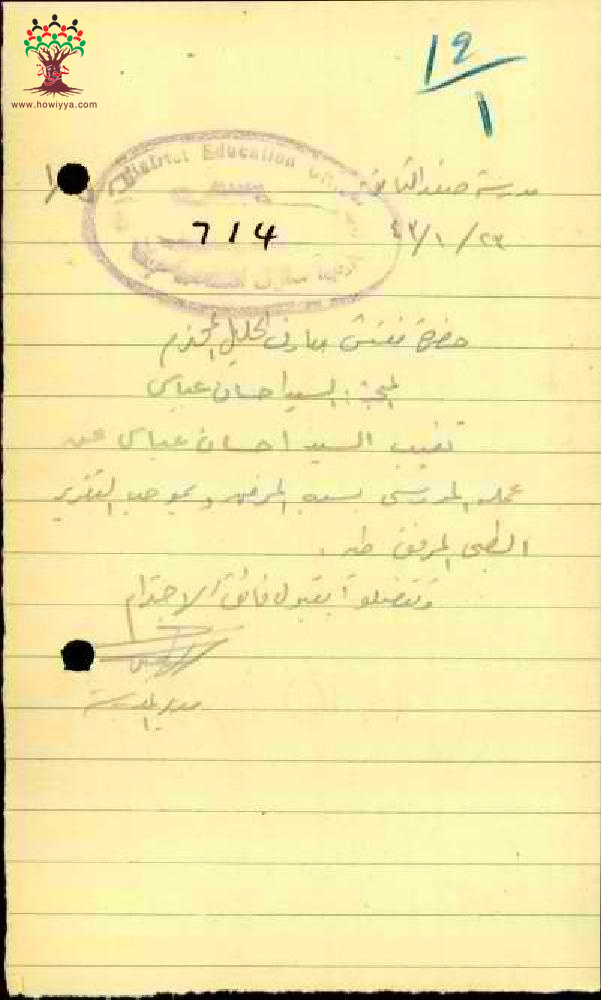 www.howiyya.com
12
1
District Education Office
714
مدرسة صفد الثانوية
٢٣/١/٤٣
حضرة مفتش معارف الجليل المحترم
المبحث: السيد احسان عباس
تغيب السيد احسان عباس عن
عمله المدرسي بسبب المرض وبموجب التقرير
الطبي المرفق طيه.
وتفضلوا بقبول فائق الاحترام
مدير المدرسة